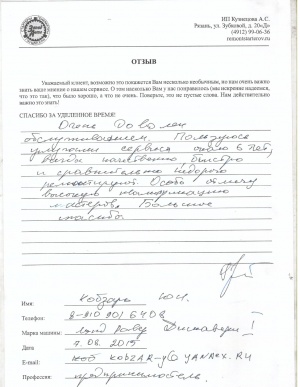 ИП Кузнецова А.С.
Рязань, ул. Зубковой, д. 20«Д»
(4912) 99-06-36
remontstarterov.ru
ОТЗЫВ
Уважаемый клиент, возможно это покажется Вам несколько необычным, но нам очень важно
знать ваше мнение о нашем сервисе. О том насколько Вам у нас понравилось (мы искренне надеемся,
что это так), что было хорошо, а что не очень. Поверьте, это не пустые слова. Нам действительно
важно это знать!
СПАСИБО ЗА УДЕЛЕННОЕ ВРЕМЯ!
Очень доволен
обслуживанием. Пользуюсь
услугами сервиса около 6 лет,
всегда качественно быстро
и сравнительно недорого
ремонтируют. Особо отмечу
высокую квалификацию
мастеров. Большое
спасибо
Имя: Кобзарь Ю.И.
Телефон: 8-910 901 6408
Марка машины: Ланд Ровер Дискавери!
Дата 7.08.2015
E-mail: KOBZAR-y@YANDEX.RU
Профессия: предприниматель.